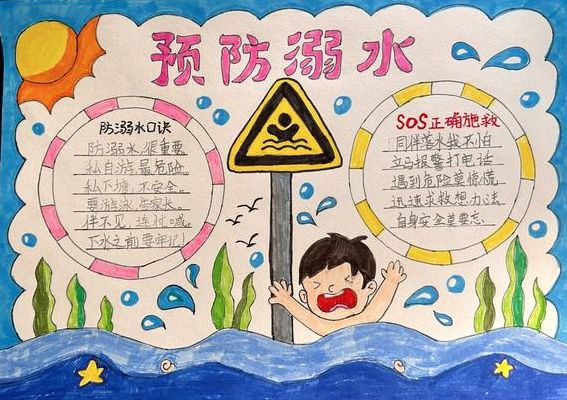 预防溺水
防溺水口诀
防溺水,很重要
私自游,最危险,
私下塘,不安全。
要游泳,告家长。
伴不见,连忙喊,
下水之前要牢记!
SOS正确施救
同伴落水我不怕
立马报警打电话
遇到危险莫惊慌
迅速求救想办法
自身安全莫要忘